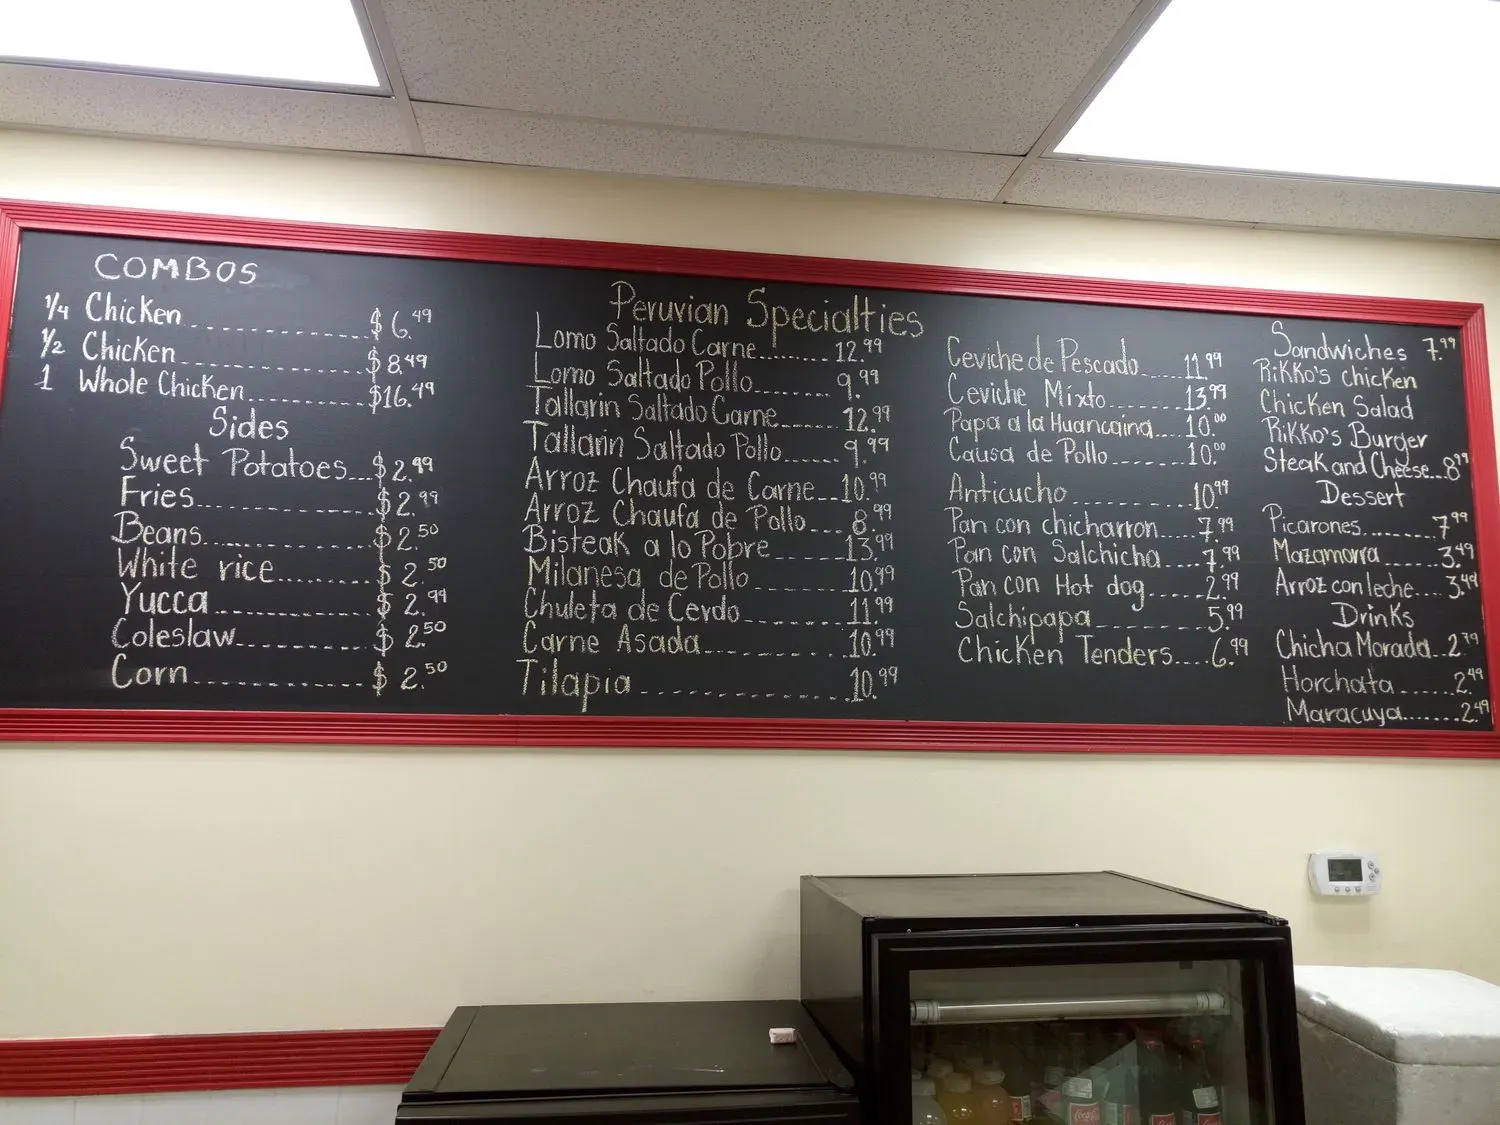 COMBOS
1/4 Chicken $6.49
1/2 Chicken $8.49
1 Whole Chicken $16.49
Sides
Sweet Potatoes $2.99
Fries $2.99
Beans $2.50
White rice $2.50
Yucca $2.99
Coleslaw $2.50
Corn $2.50
Peruvian Specialties
Lomo Saltado Carne 12.99
Lomo Saltado Pollo 9.99
Tallarin Saltado Carne 12.99
Tallarin Saltado Pollo 9.99
Arroz Chaufa de Carne 10.99
Arroz Chaufa de Pollo 8.99
Bisteak a lo Pobre 13.99
Milanesa de Pollo 10.99
Chuleta de Cerdo 11.99
Carne Asada 10.99
Tilapia 10.99
Ceviche de Pescado 11.99
Ceviche Mixto 13.99
Papa a la Huancaina 10.00
Causa de Pollo 10.00
Anticucho 10.99
Pan con chicharron 7.99
Pan con Salchicha 7.99
Pan con Hot dog 2.99
Salchipapa 5.99
Chicken Tenders 6.99
Sandwiches 7.99
Rikko's chicken
Chicken Salad
Rikko's Burger
Steak and Cheese 8.99
Dessert
Picarones 7.99
Mazamorra 3.49
Arroz con leche 3.49
Drinks
Chicha Morada 2.79
Horchata 2.49
Maracuya 2.49